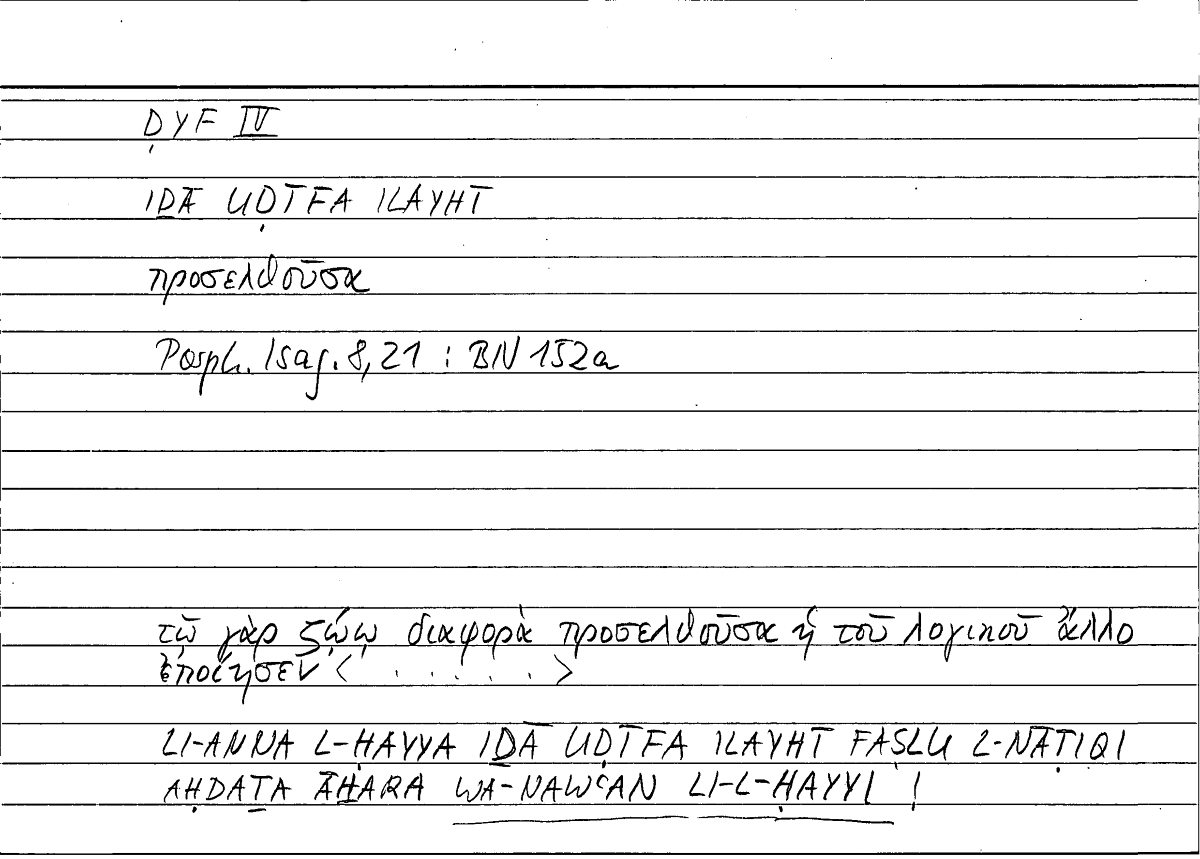 ḌYF IV
IḎĀ UḌĪFA ILAYHĪ
προσελθοῦσα
Porph. Isag. 8,21 : BN 152a
τῷ γὰρ ζῴῳ διαφορὰ προσελθοῦσα ἡ τοῦ λογικοῦ ἄλλο
ἐποίησεν < . . . . . >
LI-ANNA L-ḤAYYA IḎĀ UḌĪFA ILAYHĪ FAṢLU L-NĀṬIQI
AḤDAṮA ĀḪARA WA-NAWʿAN LI-L-ḤAYYI !